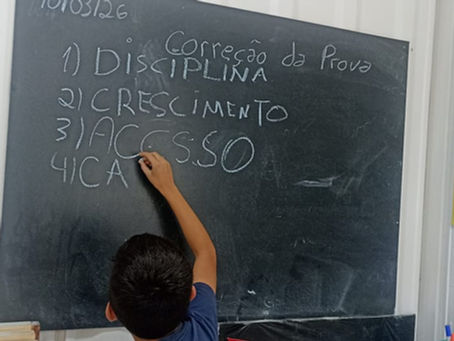 10/03/26
Correção da Prova
1) DISCIPLINA
2) CRESCIMENTO
3) ACESSO
4) CA